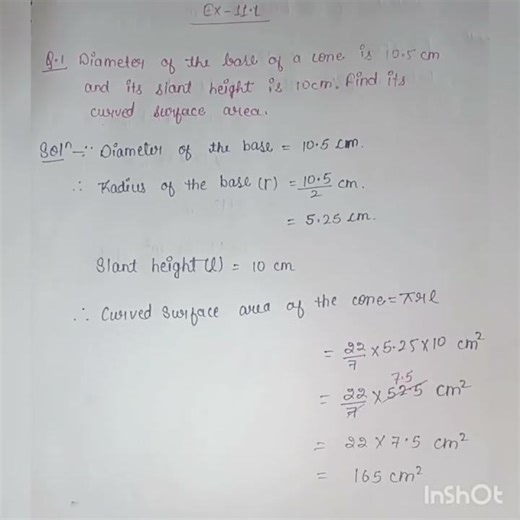 Ex-11.1
Q.1 Diameter of the base of a cone is 10.5 cm
and its slant height is 10cm. Find its
curved surface area.
Solⁿ — ∵ Diameter of the base = 10.5 cm.
∴ Radius of the base (r) = 10.5/2 cm.
= 5.25 cm.
Slant height (l) = 10 cm
∴ Curved surface area of the cone = πrl
= 22/7 × 5.25 × 10 cm²
7.5
= 22/7 × 52.5 cm²
= 22 × 7.5 cm²
= 165 cm²
InShOt